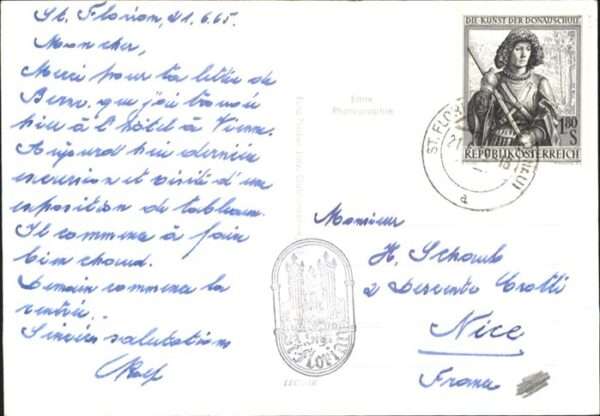 St. Florian, 21.6.65.
Mon cher,
Merci pour ta lettre de
Berre. que j'ai trouvé
hier à l'hôtel à Vienne.
Aujourd'hui dernière
excursion et visite d'une
exposition de tableau.
It commence à fair
bien chaud.
Demain commence la
rentrée.
Sincères salutations
Rolf
Echte
Photographie
DIE KUNST DER DONAUSCHULE
1.80
S
REPUBLIK ÖSTERREICH
ST. FLORIAN
21
Monsieur
H. Schaub
2 Descente Crotti
Nice
France
Stift
St. Florian